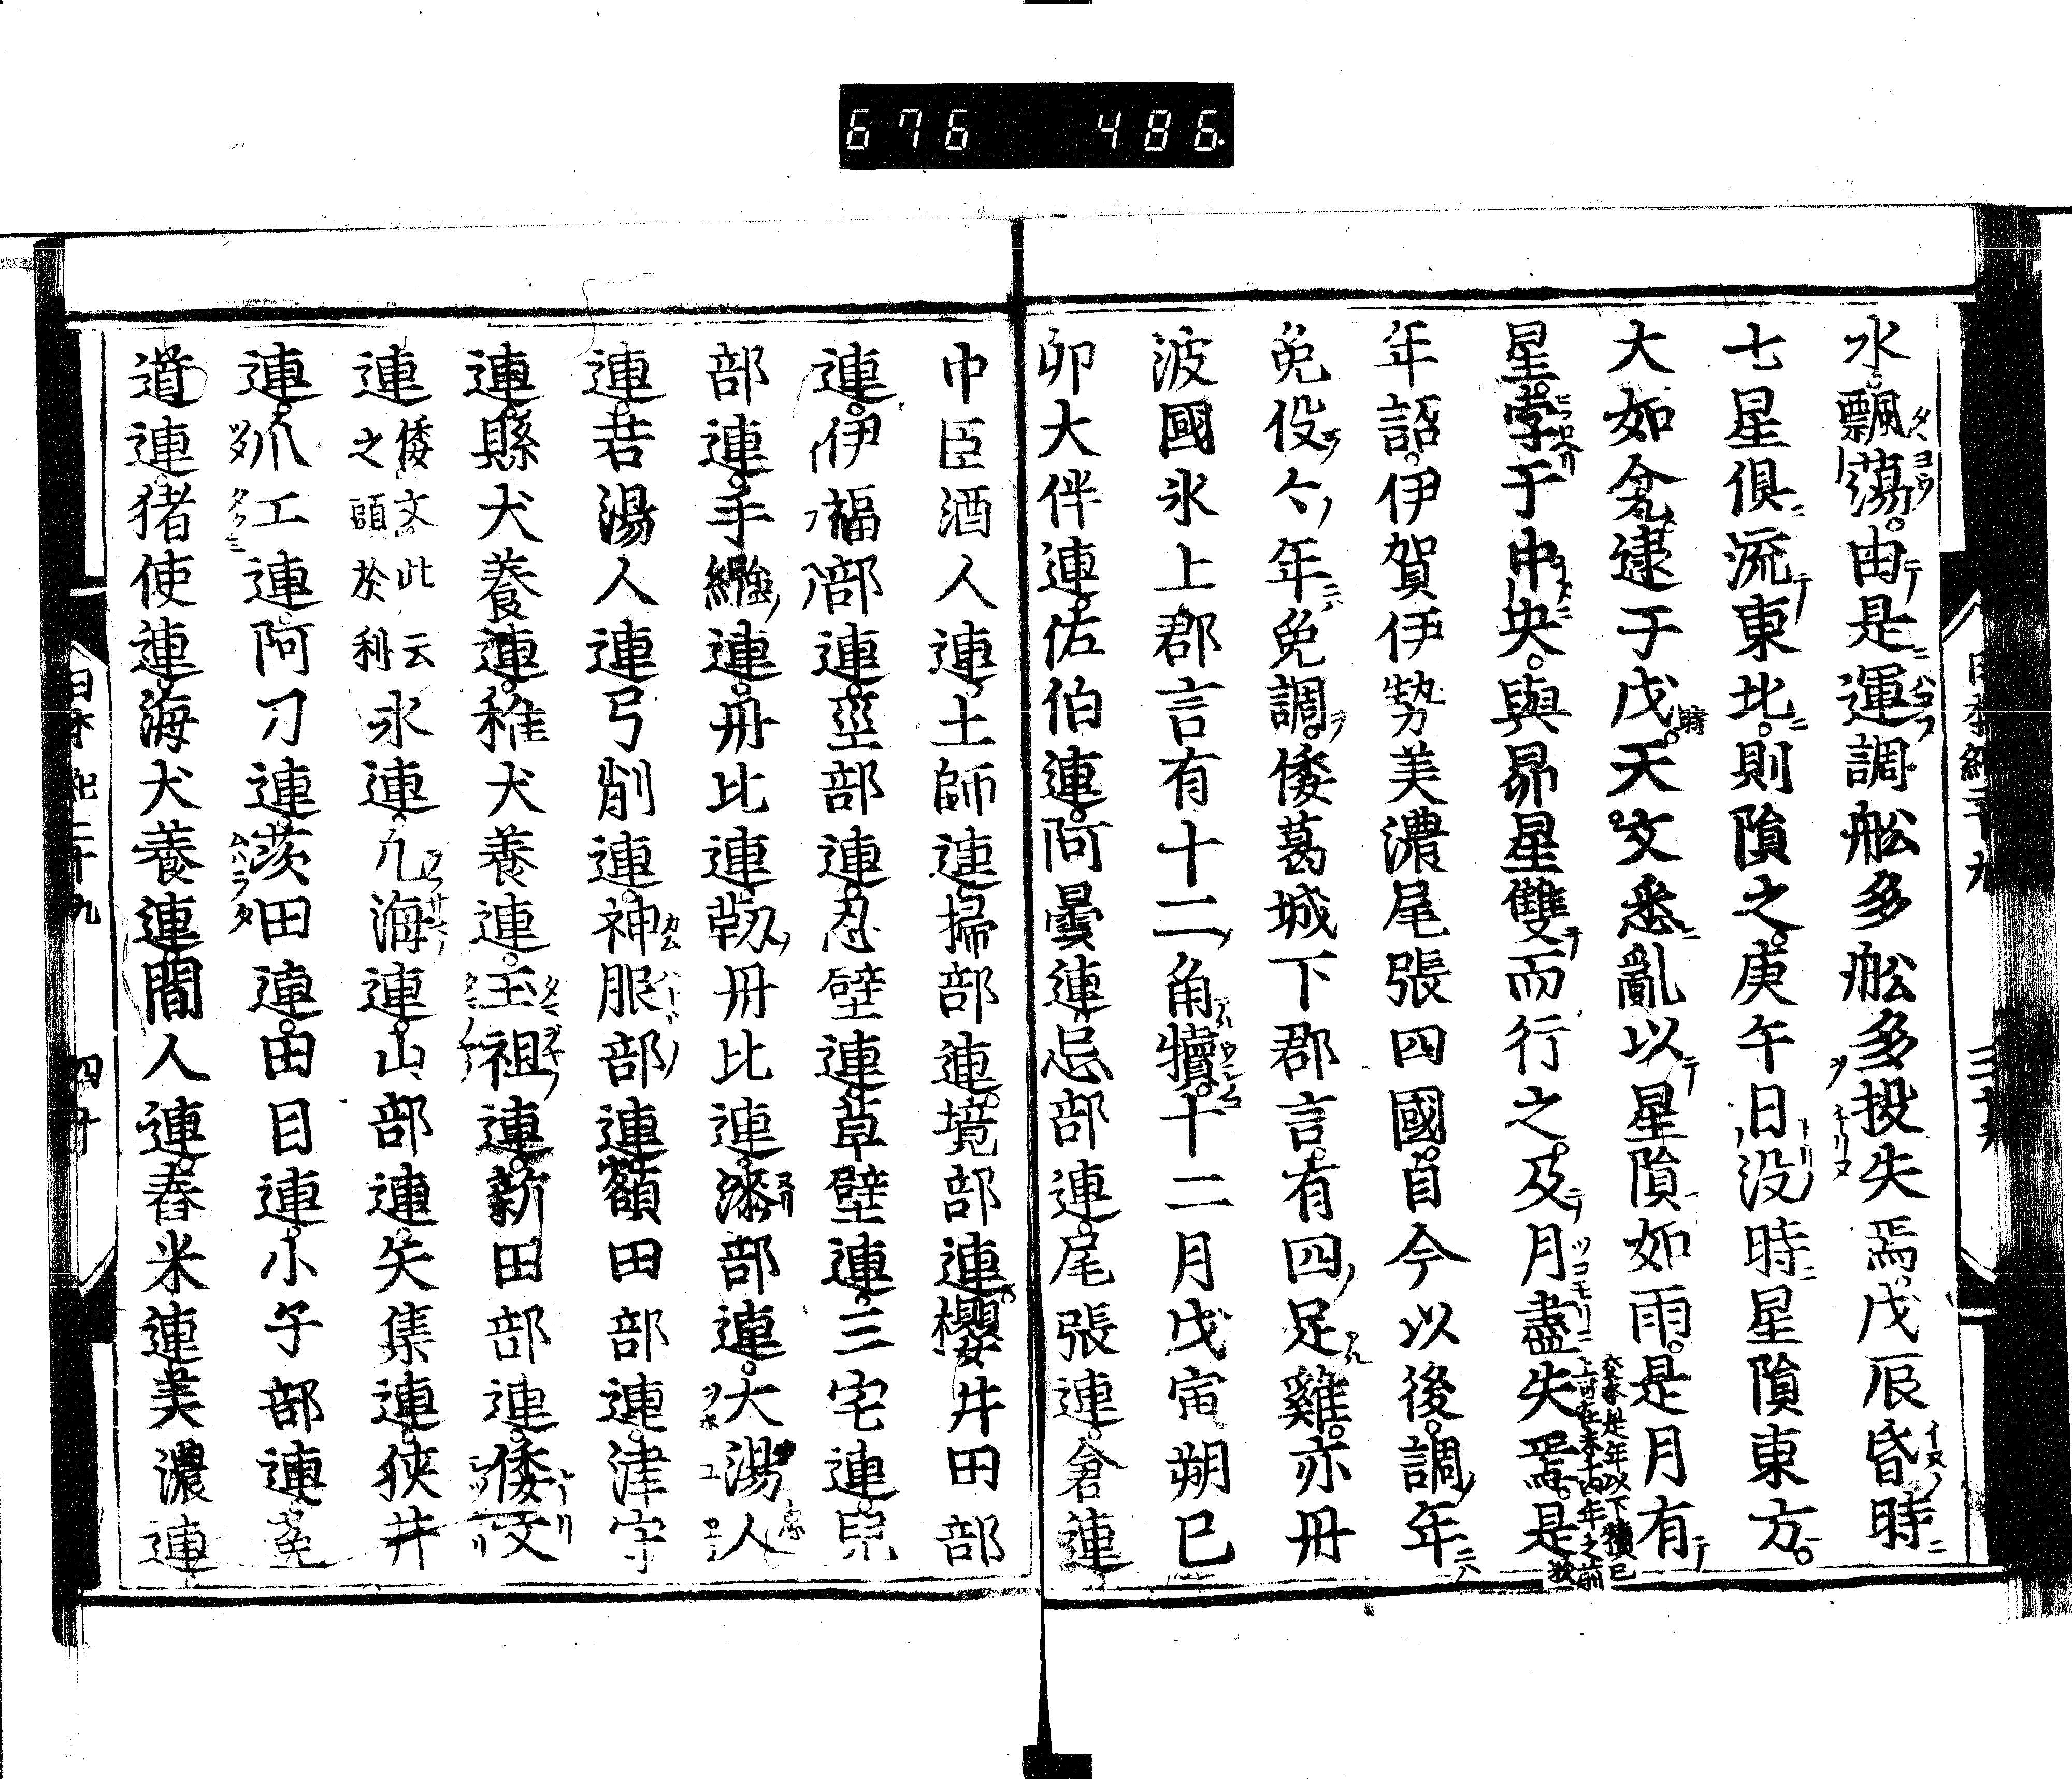 676 486
水飄蕩由是運調舩多舩多投失焉戊辰昏時
七星俱流東北則隕之庚午日没時星隕東方
大如瓮逮于戌天文悉亂以星隕如雨是月有
星孛于中央與昴星雙而行之及月盡失焉是
年詔伊賀伊勢美濃尾張四國自今以後調年
免役亽年免調倭葛城下郡言有四足雞亦丹
波國氷上郡言有十二角犢十二月戊寅朔巳
卯大伴連佐伯連阿曇連忌部連尾張連倉連
中臣酒人連土師連掃部連境部連櫻井田部
連伊福部連巫部連忍壁連草壁連三宅連兒
部連手繦連丹比連靭丹比連漆部連大湯人
連若湯人連弓削連神服部連額田部連津守
連縣犬養連稚犬養連玉祖連新田部連倭文
連倭文此云之頭於利氷連凡海連山部連矢集連狹井
連爪工連阿刀連茨田連田目連小子部連菟
道連猪使連海犬養連間人連舂米連美濃連
日本紀二十九
四十